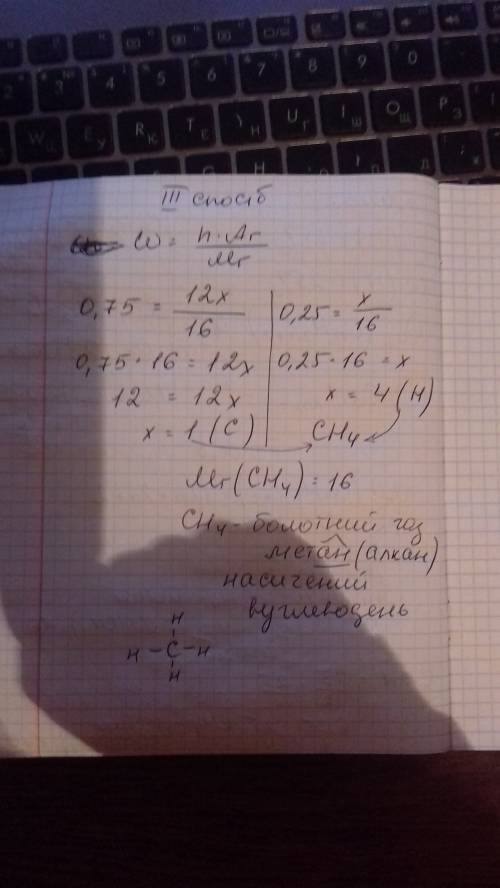 III спосіб
W = n·Ar / Mr
0,75 = 12x / 16
0,75 · 16 = 12x
12 = 12x
x = 1 (C)
0,25 = x / 16
0,25 · 16 = x
x = 4 (H)
CH₄
Mr(CH₄) = 16
CH₄ - болотний газ
метан (алкан)
насичений
вуглеводень
H
H - C - H
H